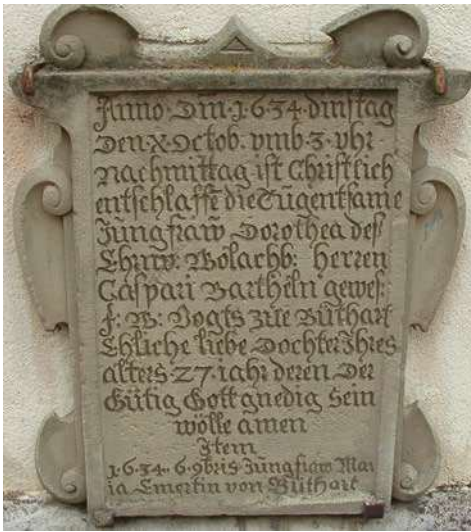 Anno · Dm̄ · 1 · 6 · 34 · dinstag
Den · X · Octob · vmb · 3 · vhr
Nachmittag ist Christlich
entschlaffē die Tugentsame
Jungfraw Dorothea des
Ehrw: Wolachb: herren
Caspari Bartheln gewes:
f: W: Vogts zue Büthart
Ehliche liebe Dochter Ihres
alters 27 · iahr deren Der
Gütig Gott gnedig Sein
wölle amen
Item
1 · 6 · 34 · 6 · 9bris Jungfraw Mar
ia Emertin von Büthart